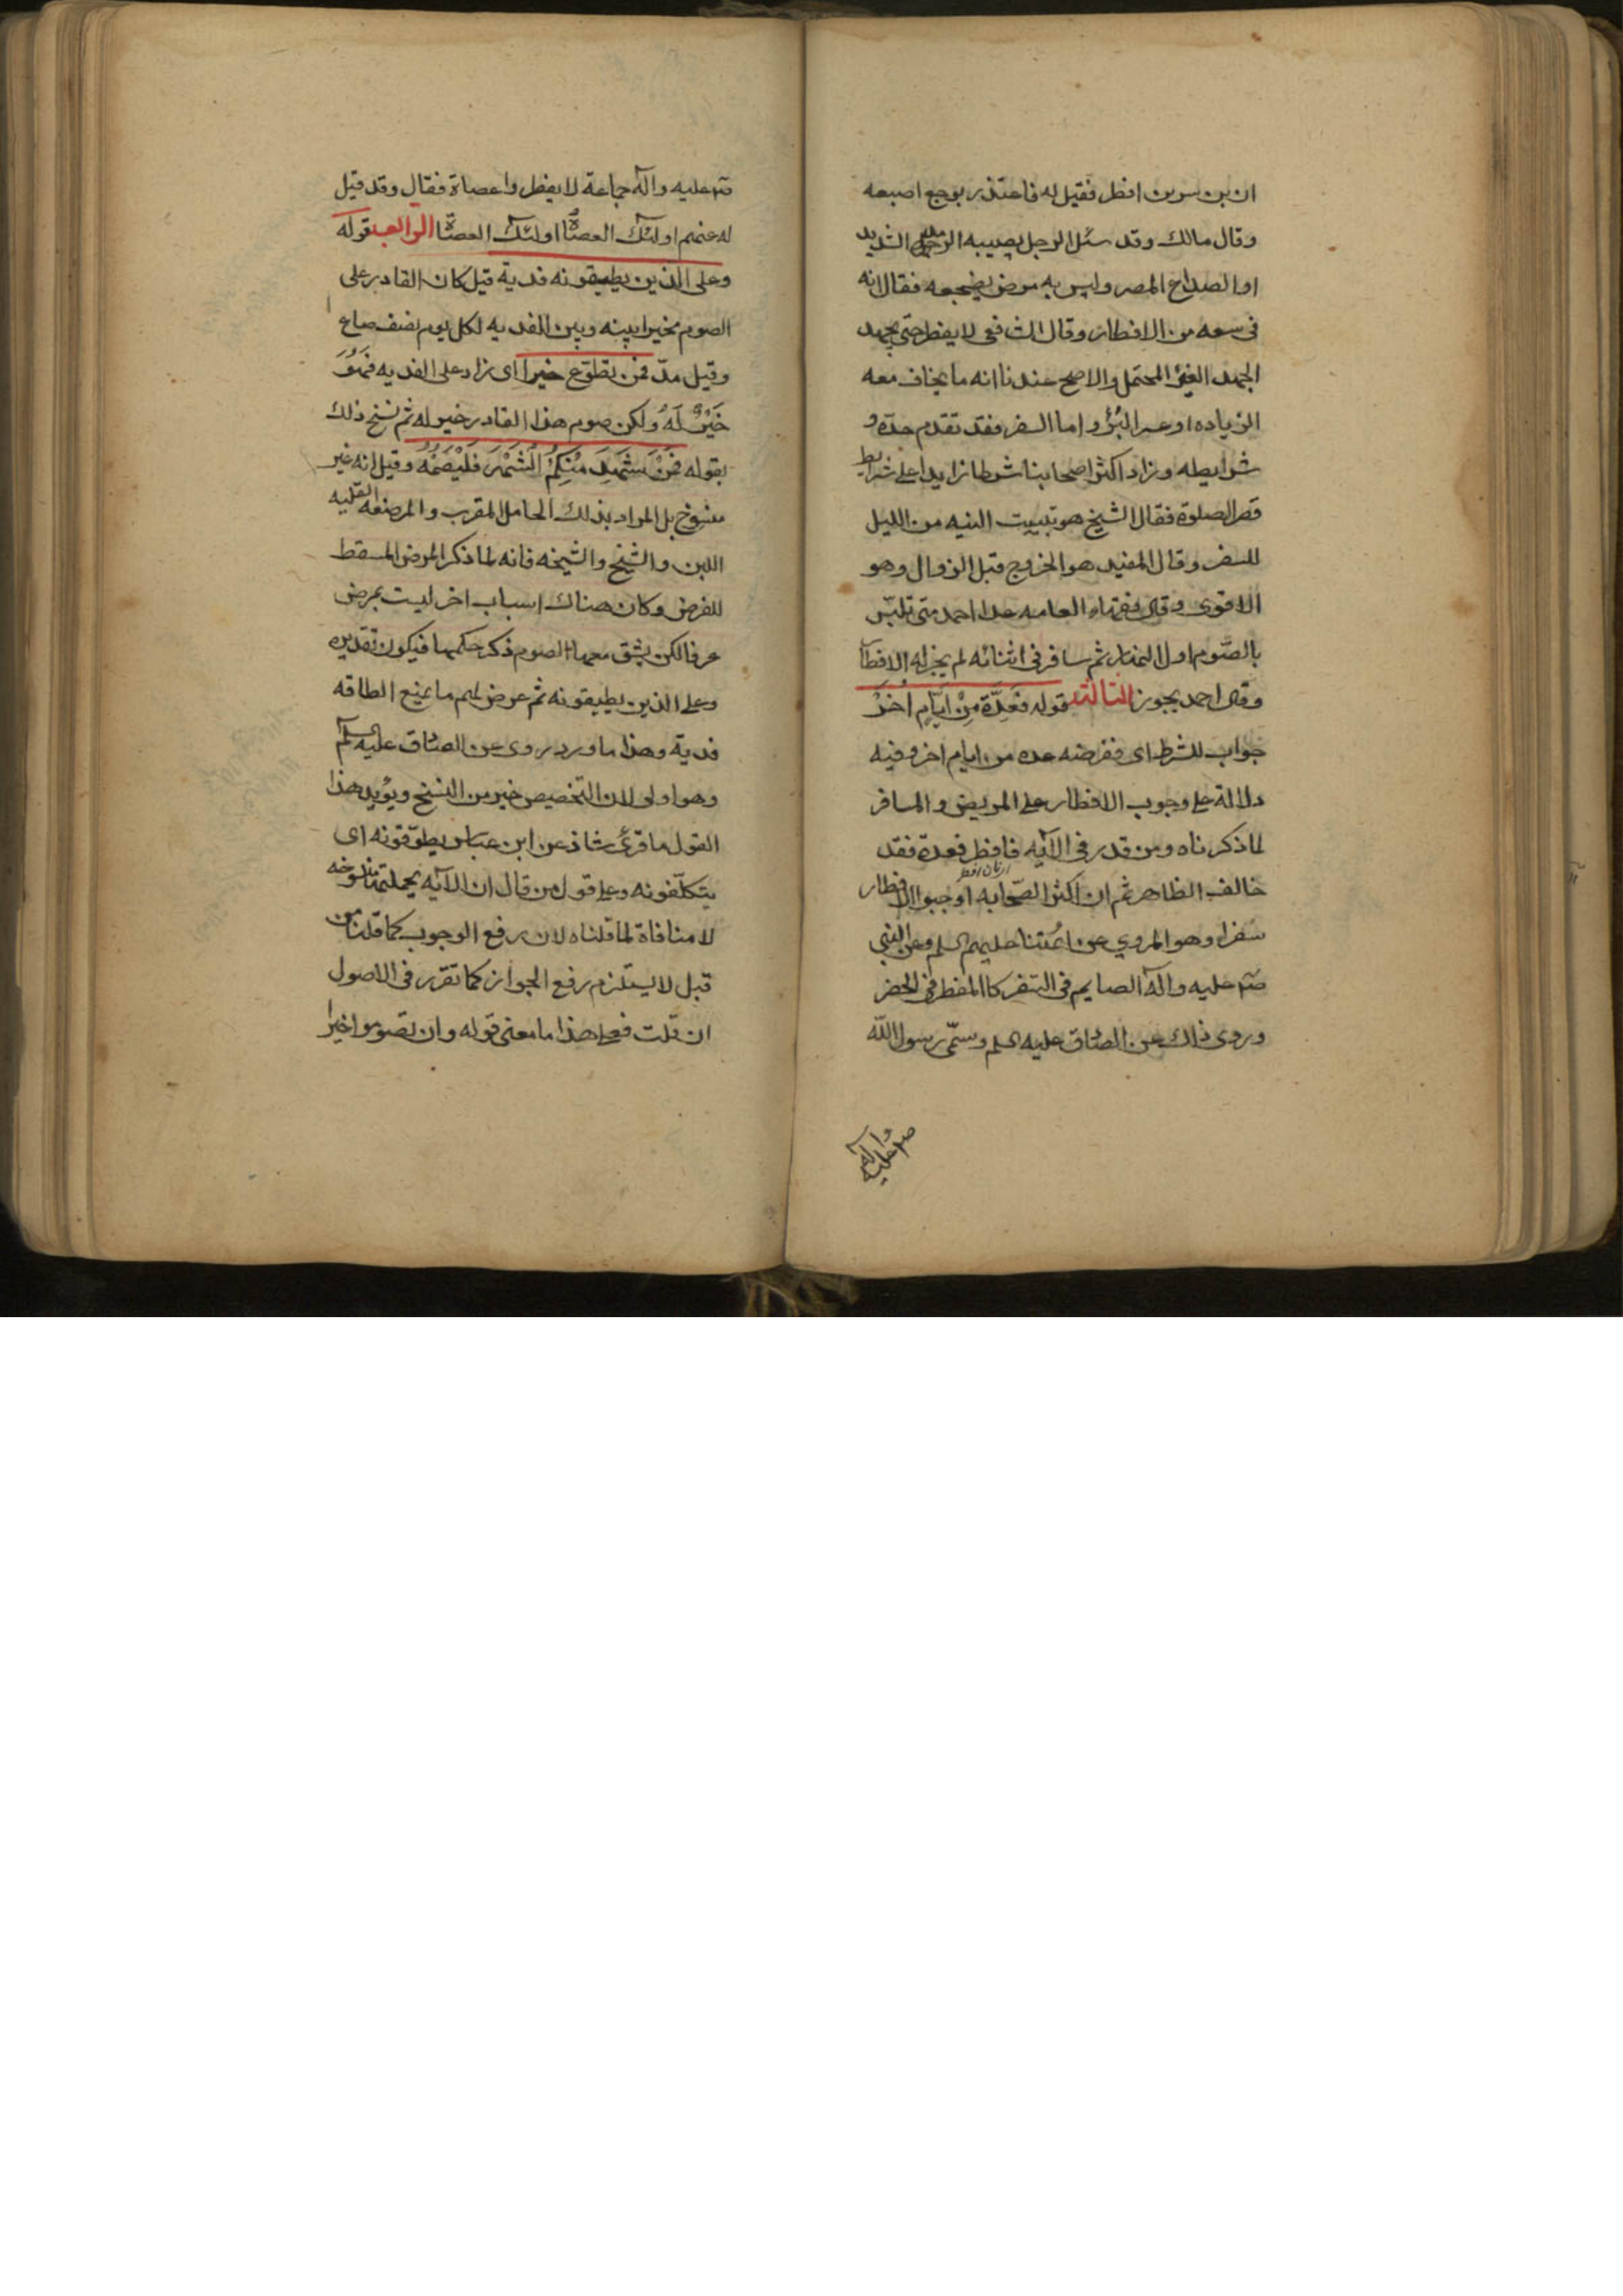 ان بن سيرين افطر فقيل له فاعتذر بوجع اصبعه
وقال مالك وقد سئل الرجل يصيبه الرمد الشديد
او الصداع المضر وليس به مرض يضجعه فقال انه
فى سعه من الافطار وقال الشافعى لا يفطر حتى يجهد
الجهد الغير المحتمل والاصح عندنا انه ما يخاف معه
الزياده او عسر البرؤ واما السفر فقد تقدم حده و
شرايطه وزاد اكثر اصحابنا شرطا زايدا على شرايط
قصر الصلوة فقال الشيخ هو تبييت النيه من الليل
للسفر وقال المفيد هو الخروج قبل الزوال وهو
الاقوى وقال فقهاء العامه عدا احمد متى تلبّس
بالصّوم اول النهار ثم سافر فى اثنائه لم يجز له الافطار
وقال احمد يجوز الثالثه قوله فَعِدَّة مِنْ ايّامٍ اُخَرَ
جواب للشرط اى ففرضه عده من ايام اخر وفيه
دلالة على وجوب الافطار على المريض والمسافر
لما ذكرناه ومن قدر فى الآيه فافطر فعدة فقد
خالف الظاهر ثم ان اكثر الصّحابه اوجبوا الافطار
سفرا وهو المروي عن ائمتنا عليهم السلم وعن النبى
صلى عليه وآله الصايم فى السفر كاالمفطر فى الحضر
وروى ذلك عن الصادق عليه السلم وسمّى رسول اللّه
صلى عليه وآله
صلى عليه وآله جماعة لا يفطروا عصاة فقال وقد قيل
له عنهم اولئك العصاة اولئك العصاة الرابعه قوله
وعلى الّذين يطيقونه فدية قيل كان القادر على
الصوم مخيرا بينه وبين الفديه لكل يوم نصف صاع
وقيل مدّ فمن تطوّع خيرا اى زاد على الفديه فَهُوَ
خَيْرٌ لَهُ ولكن صوم هذا القادر خير له ثم نسخ ذلك
بقوله فَمَنْ شَهِدَ مِنْكُمْ الشَهْرَ فَلْيَصُمْهُ وقيل انه غير
منسوخ بل المراد بذلك الحامل المقرب والمرضعه القليله
اللبن والشيخ والشيخه فانه لما ذكر المرض المسقط
للفرض وكان هناك اسباب اخر ليست بمرض
عرفا لكن يشق معها الصوم ذكر حكمها فيكون تقديره
وعلى الذين يطيقونه ثم عرض لهم ما يمنع الطاقه
فدية وهذا ما ورد روى عن الصادق عليه السلم
وهو اولى لان التخصيص خير من النسخ ويؤيد هذا
القول ما قرئ شاذ عن ابن عباس يطوّقونه اى
يتكلّفونه وعلى قول من قال ان الآيه بجملتها منسوخه
لا منافاة لما قلناه لان رفع الوجوب كما قلنا من
قبل لا يستلزم رفع الجواز كما تقرر فى الاصول
ان قلت فعلى هذا ما معنى قوله وان تصوموا خيرا